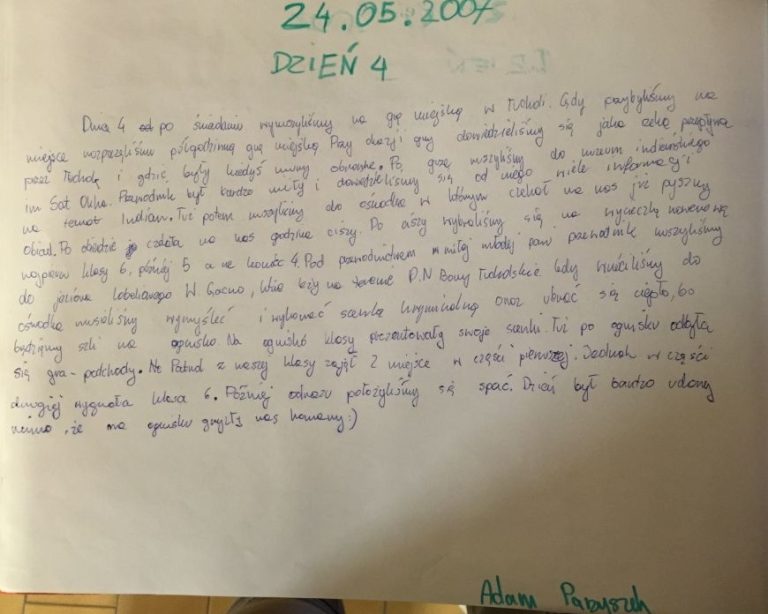 24.05.2007
DZIEŃ 4
Dnia 4 po śniadaniu wyruszyliśmy na grę miejską w Tucholi. Gdy przybyliśmy na
miejsce rozpoczęliśmy półgodzinną grę miejską. Przy okazji gry dowiedzieliśmy się jaka rzeka przepływa
przez Tucholę i gdzie były kiedyś mury obronne. Po grze ruszyliśmy do muzeum indiańskiego
im Sat Okha. Przewodnik był bardzo miły i dowiedzieliśmy się od niego wiele informacji
na temat Indian. Tuż potem ruszyliśmy do ośrodka w którym czekał na nas już pyszny
obiad. Po obiedzie czekała na nas godzina ciszy. Po ciszy wybraliśmy się na wycieczkę rowerową
najpierw klasy 6, później 5 a na końcu 4. Pod przewodnictwem miłej młodej pani przewodnik ruszyliśmy
do jeziora lobeliowego W. Gacno, które leży na terenie P.N Bory Tucholskie. Gdy wróciliśmy do
ośrodka musieliśmy wymyśleć i wykonać scenkę kryminalną oraz ubrać się ciepło, bo
będziemy szli na ognisko. Na ognisku klasy prezentowały swoje scenki. Tuż po ognisku odbyła
się gra - podchody. Patrol z naszej klasy zajął 2 miejsce w części pierwszej. Jednak w części
drugiej wygrała klasa 6. Później odrazu położyliśmy się spać. Dzień był bardzo udany
mimo, że na ognisku gryzły nas komary:)
Adam Paryszek